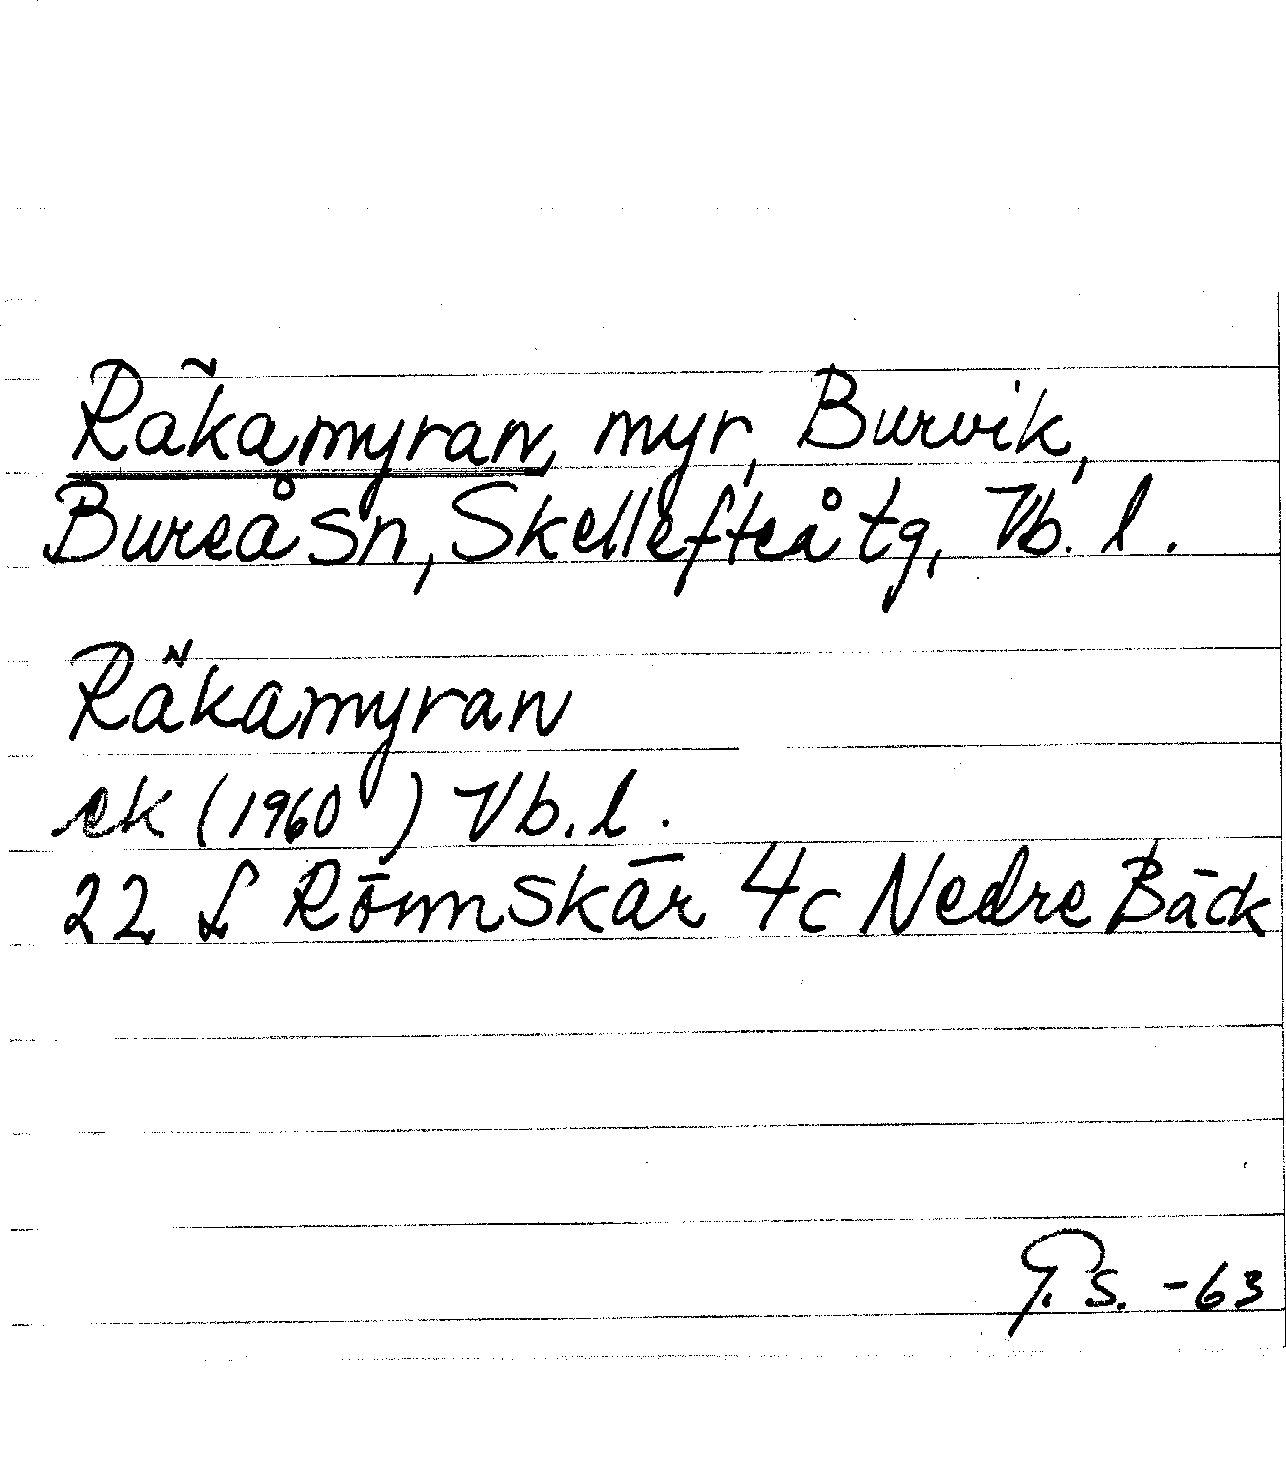 Räkamyran, myr, Burvik,
Bureå sn, Skellefteå tg, Vb. l.
Räkamyran
ek (1960) Vb. l.
22 L Rönnskär 4c Nedre Bäck
G. P. s. -63